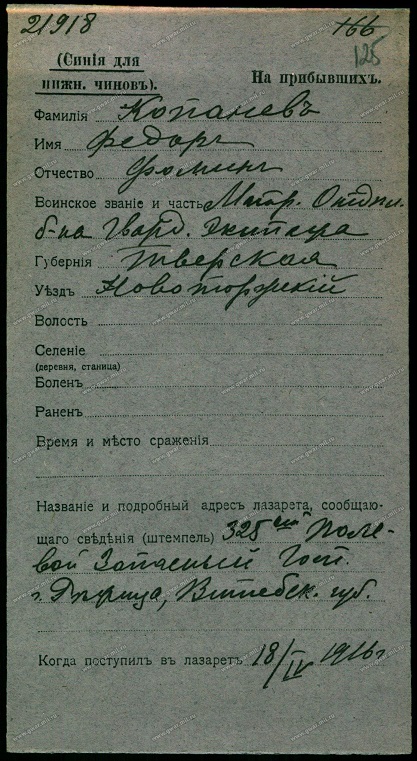 21918 166
125
(Синія для
нижн. чиновъ). На прибывшихъ.
Фамилія Копаневъ
Имя Федоръ
Отчество Фоминъ
Воинское званіе и часть Матр. Отдѣл.
б-на Гвард. Экипажа
Губернія Тверская
Уѣздъ Новоторжскій
Волость
Селеніе
(деревня, станица)
Боленъ
Раненъ
Время и мѣсто сраженія
Названіе и подробный адресъ лазарета, сообщаю-
щаго свѣдѣнія (штемпель) 325ый Поле-
вой Запасный Гос.
г. Витебск. губ.
Когда поступилъ въ лазаретъ 18/IV 1916 г